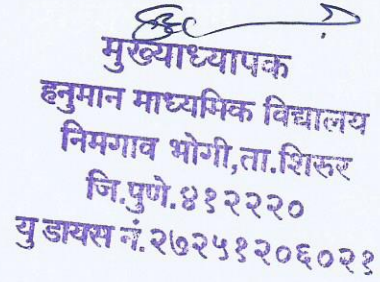 मुख्याध्यापक
हनुमान माध्यमिक विद्यालय
निमगाव भोगी,ता.शिरूर
जि.पुणे.४१२२२०
यु डायस नं.२७२५१२०६०२१